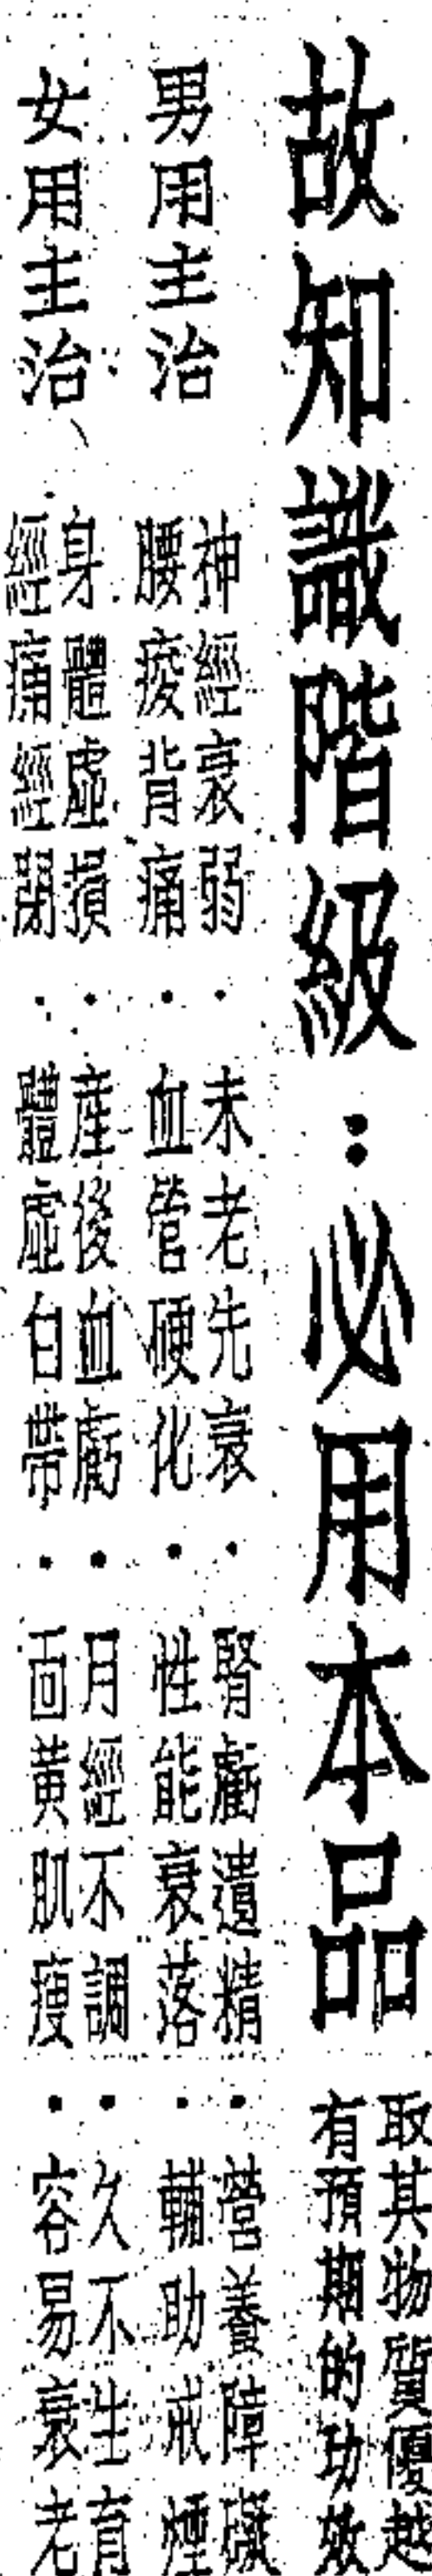 故知識階級：必用本品
取其物質優越
有預期的功效
男用主治
神經衰弱・未老先衰・腎虧遺精・營養障礙
腰痠背痛・血管硬化・性能衰落・輔助戒煙
女用主治、
身體虛損・產後血虧・月經不調・久不生育
經痛經閉・體虛白帶・面黃肌瘦・容易衰老